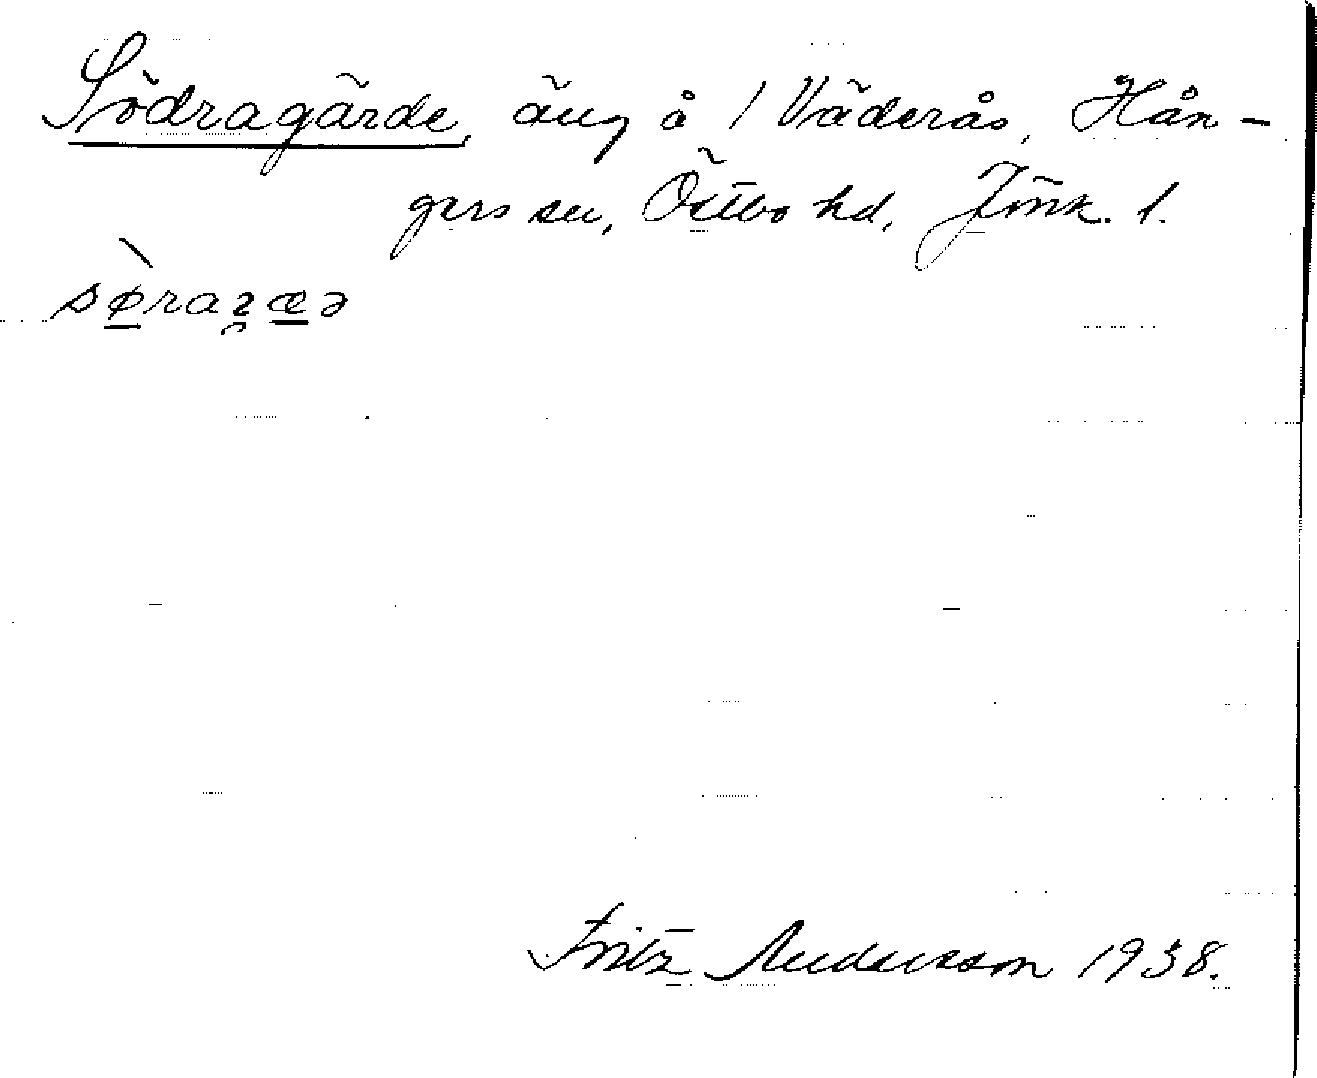 Södragärde, äng å 1 Väderås, Hån-
gers sn, Östbo hd, Jönk. l.
sø̀raɡæə
Fritz Andersson 1938.